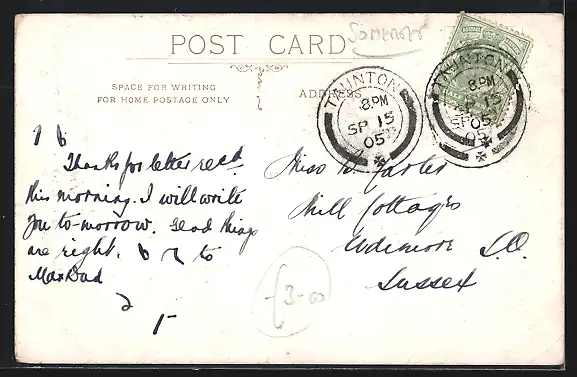 Somerset
POST CARD
SPACE FOR WRITING
FOR HOME POSTAGE ONLY
ADDRESS
TAUNTON
8 PM
SP 15
05
TAUNTON
8 PM
SP 15
05
Thanks for letter recd
this morning. I will write
you to-morrow. things
are right. to
Miss Carter
Mill Cottages
Udimore S.O.
Sussex
3-00